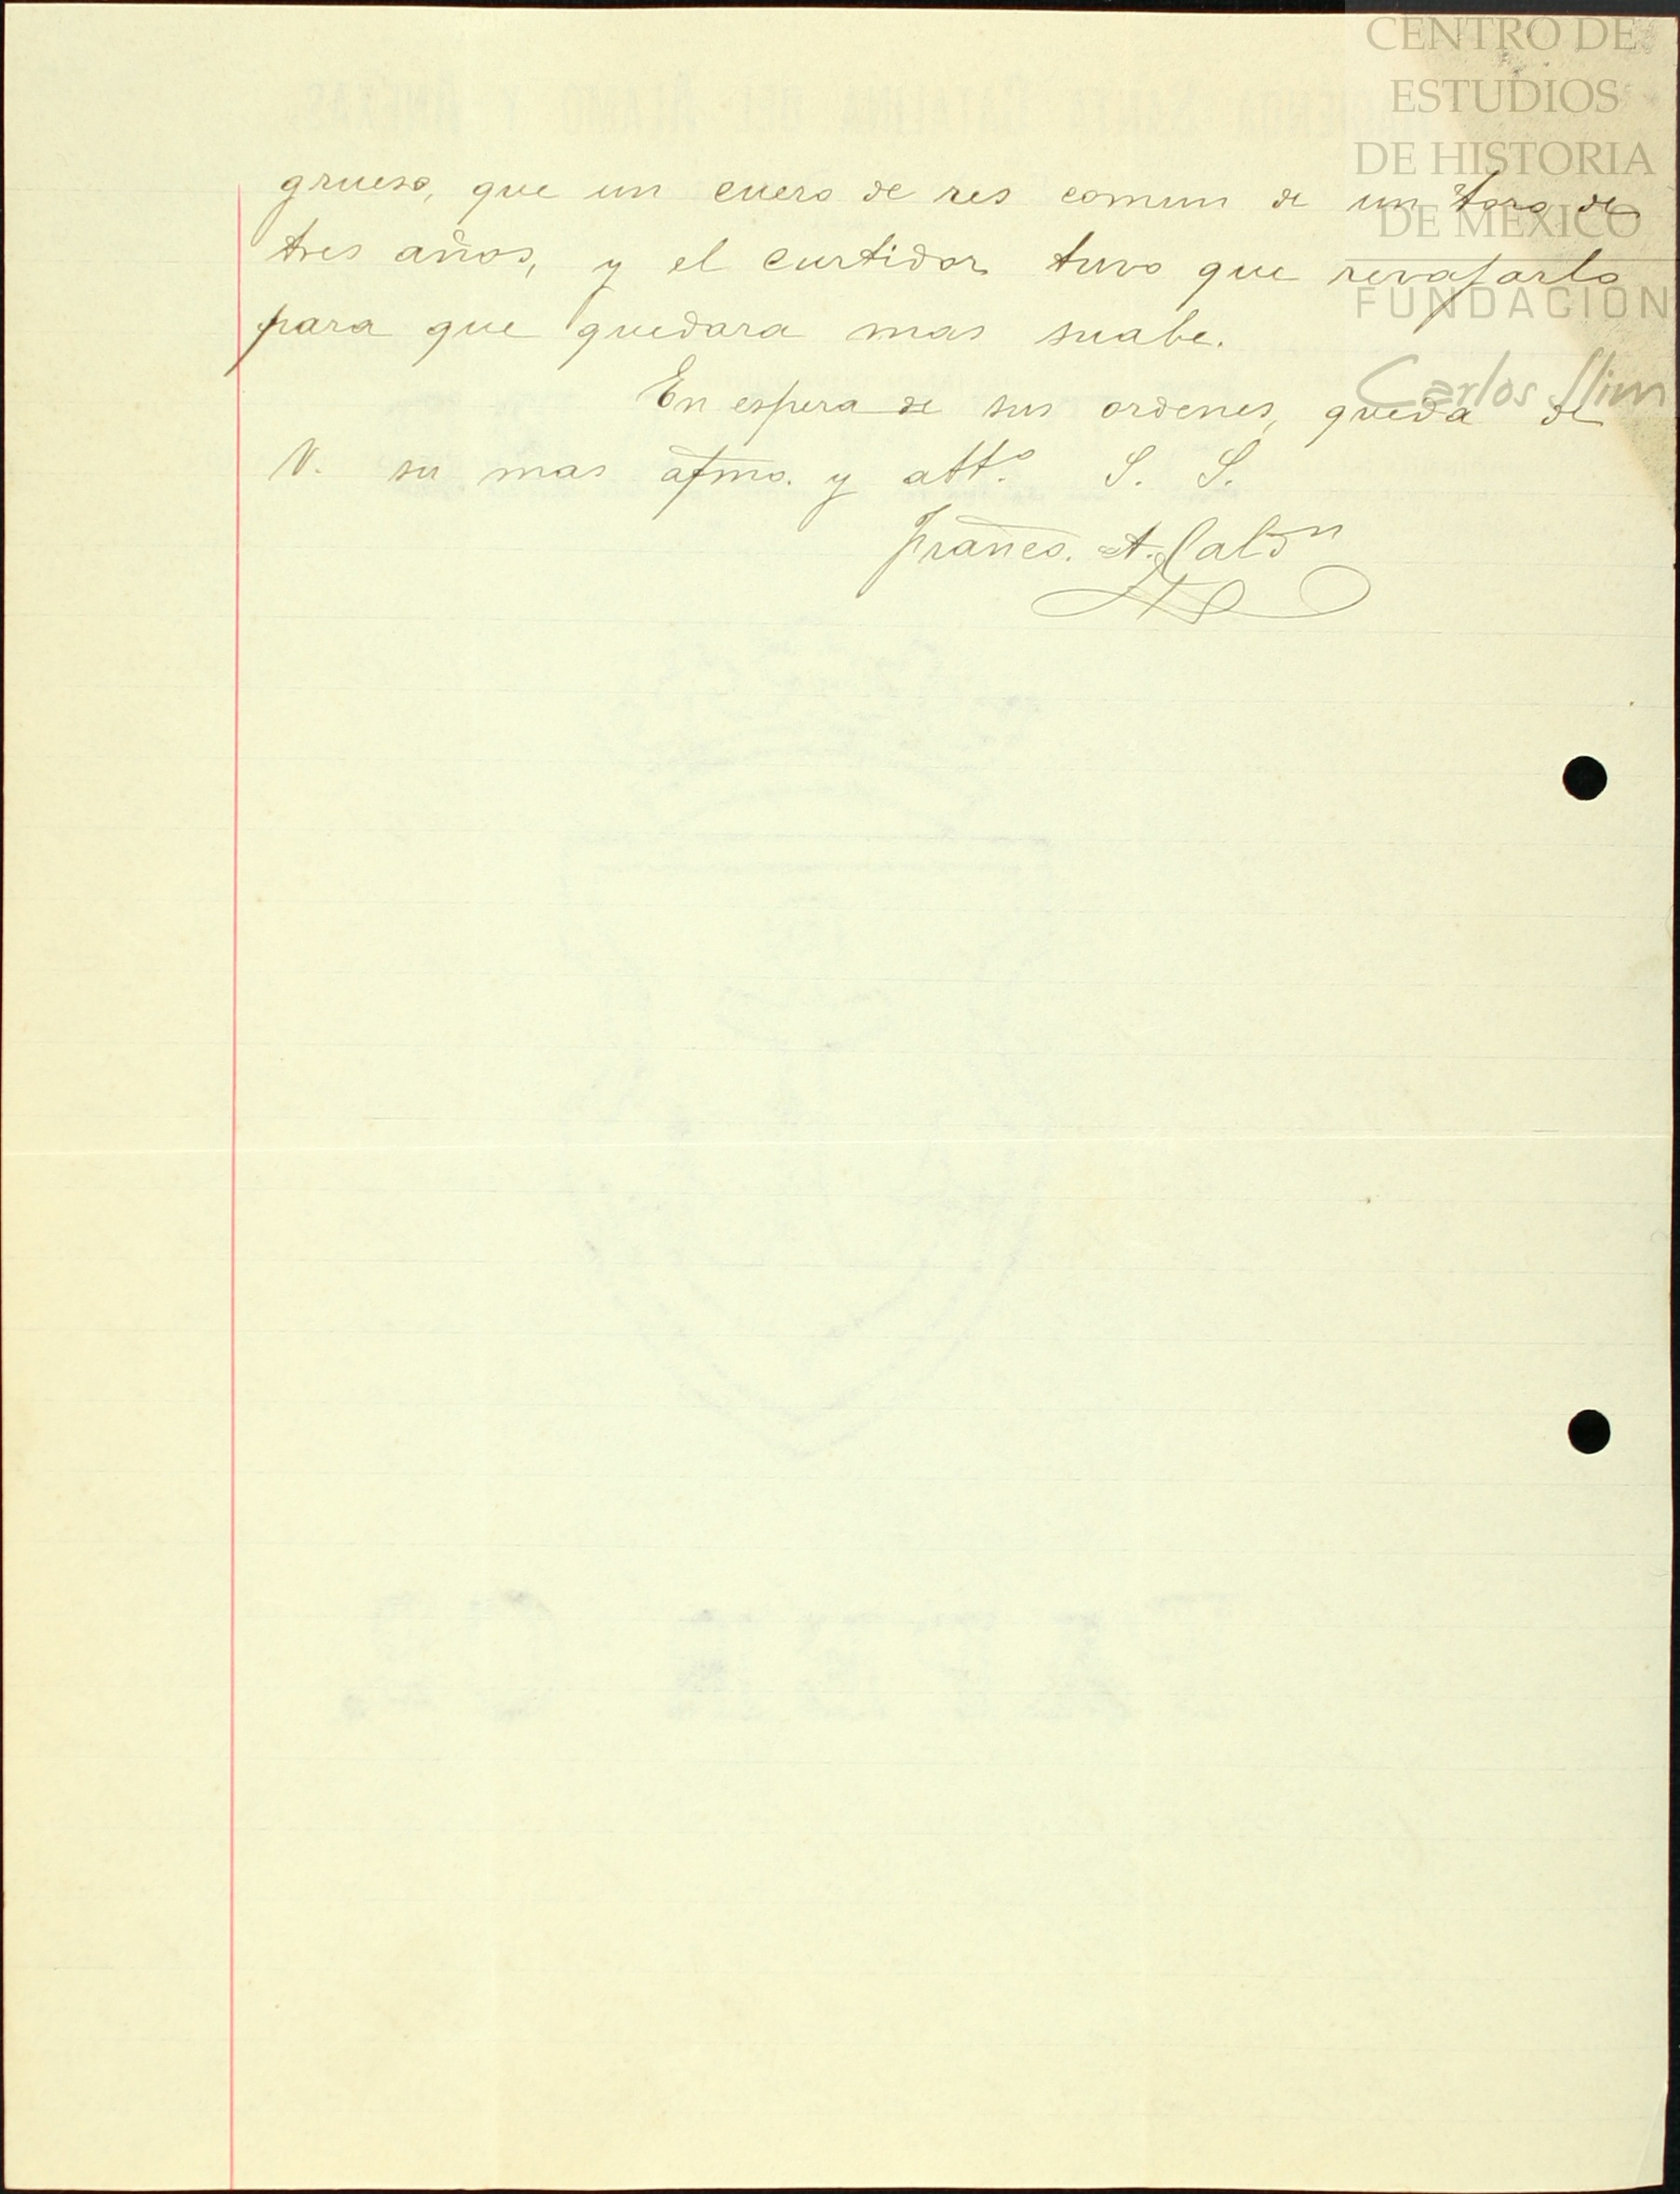 CENTRO DE
ESTUDIOS
DE HISTORIA
DE MÉXICO
FUNDACIÓN
Carlos Slim
grueso, que un cuero de res comun de un toro de
tres años, y el curtidor tuvo que revajarlo
para que quedara mas suabe.
En espera de sus ordenes, queda de
V. su mas afmo. y atto. S. S.
Franco. A. Caldn